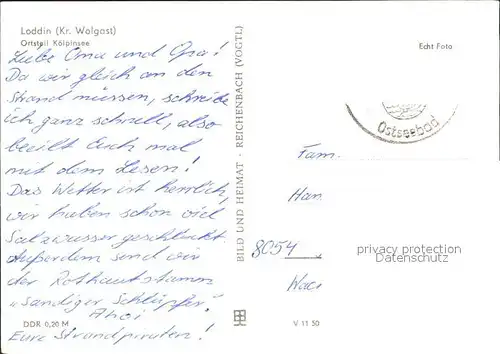 Loddin (Kr. Wolgast)
Ortsteil Kölpinsee
Liebe Oma und Opa!
Da wir gleich an den
Strand müssen, schreibe
ich ganz schnell, also
beeilt Euch mal
mit dem Lesen!
Das Wetter ist herrlich,
wir haben schon viel
Salzwasser geschluckt.
Außerdem sind wir
der Rothautstamm
"sandiger Schlüpfer".
Ahoi
Eure Strandpiraten!
DDR 0,20 M
BILD UND HEIMAT · REICHENBACH (VOGTL)
V 11 50
Echt Foto
Ostseebad
Fam.
Han
8054
Wac
privacy protection
Datenschutz